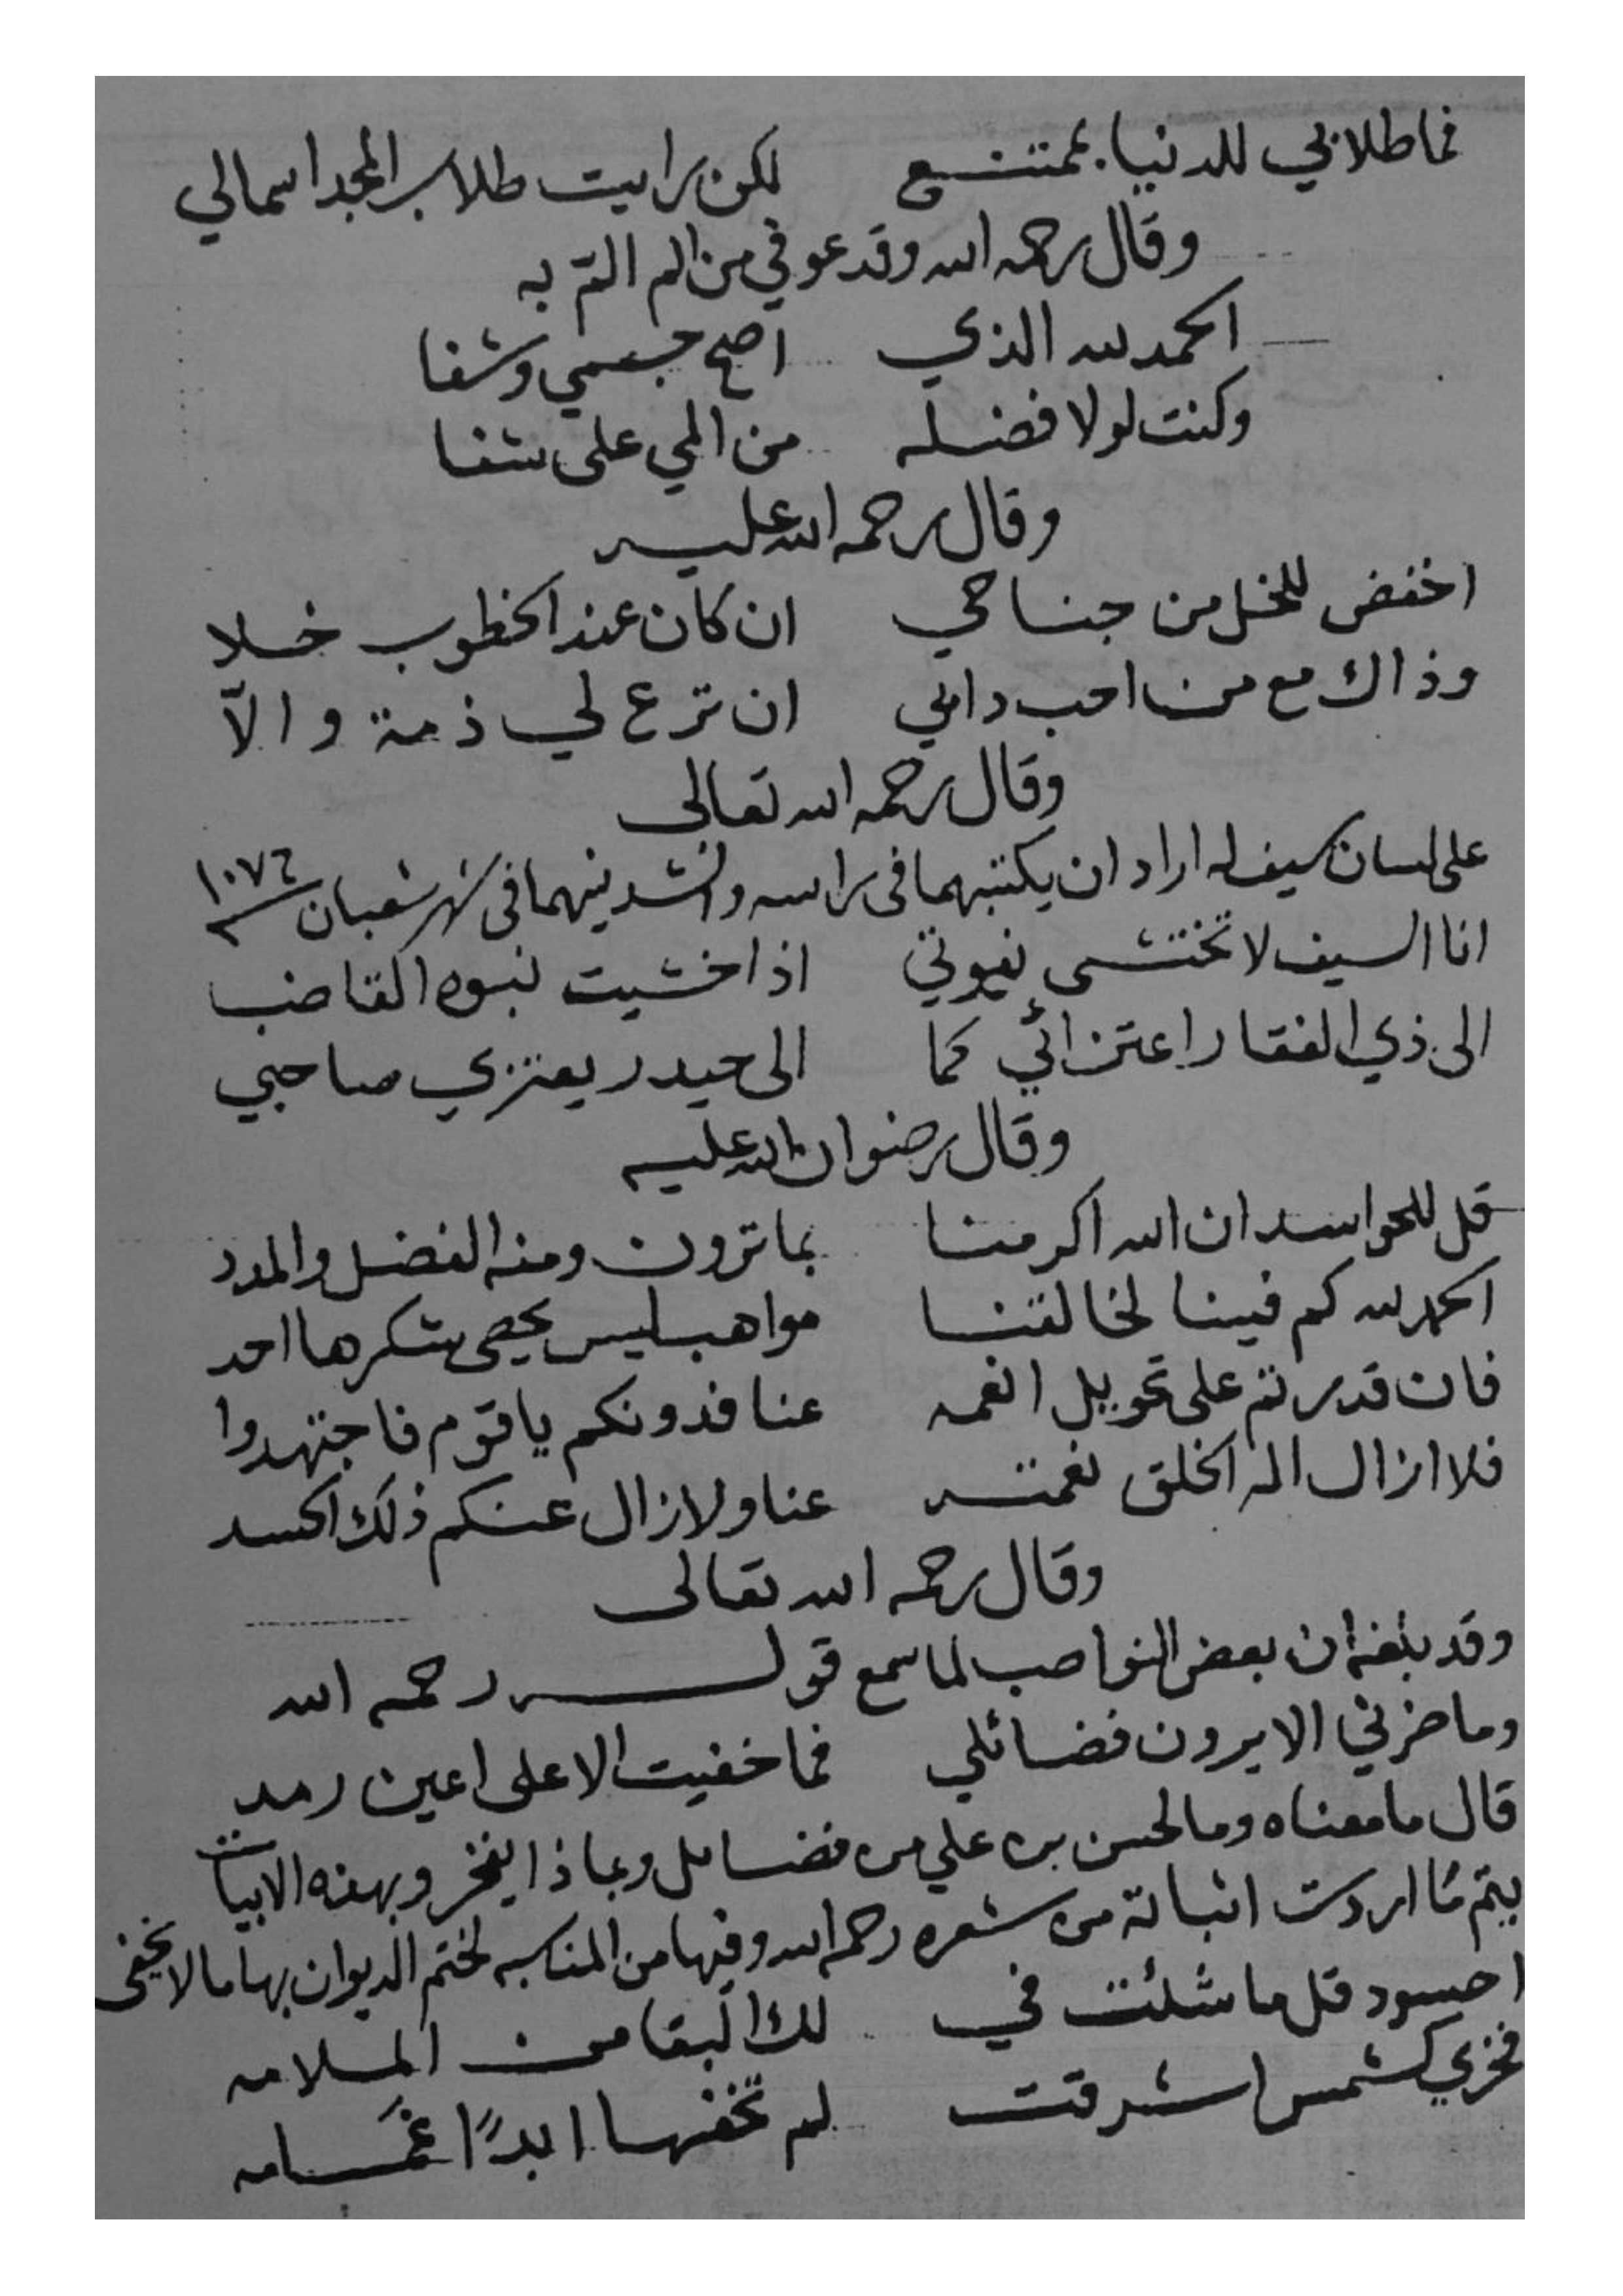 فما طلابي للدنيا بممتنع لكن رايت طلاب المجد اسمالي
وقال رحمه الله وقد عوفي من الم الم به
الحمد لله الذي اصح جسمي وشفا
وكنت لولا فضله من المي على شفا
وقال رحمه الله عليه
اخفض للخل من جناحي ان كان عند الخطوب خلا
وذاك مع من احب دابي ان ترع لي ذمة والاّ
وقال رحمه الله تعالى
على لسان سيف له اراد ان يكتبهما في راسه وانشدنيهما في شهر شعبان سنة ١٠٧٦
انا السيف لا تختشى نبوتي اذا خشيت نبوه القاضب
الى ذي الفقار اعتزائي كما الى حيدر يعتزي صاحبي
وقال رضوان الله عليه
قل للحواسد ان الله اكرمنا بما ترون ومنه الفضل والمدد
الحمد لله كم فينا لخالقنا مواهب ليس يحصي شكرها احد
فان قدرتم على تحويل انعمه عنا فدونكم يا قوم فاجتهدوا
فلا ازال اله الخلق نعمته عنا ولا زال عنكم ذلك الحسد
وقال رحمه الله تعالى
وقد بلغه ان بعض النواصب لما سمع قوله رحمه الله
وما ضرني الا يرون فضائلي فما خفيت الا على اعين رمد
قال ما معناه وما لحسن بن علي من فضائل وبماذا يفخر وبهذه الابيات
يتم ما اردت اثباته من شعره رحمه الله وفيها من المناسبه لختم الديوان بها ما لا يخفى
احسود قل ما شئت في لك البقا من الملامه
فخري كشمس اشرقت لم تخفها ابدًا غمامه